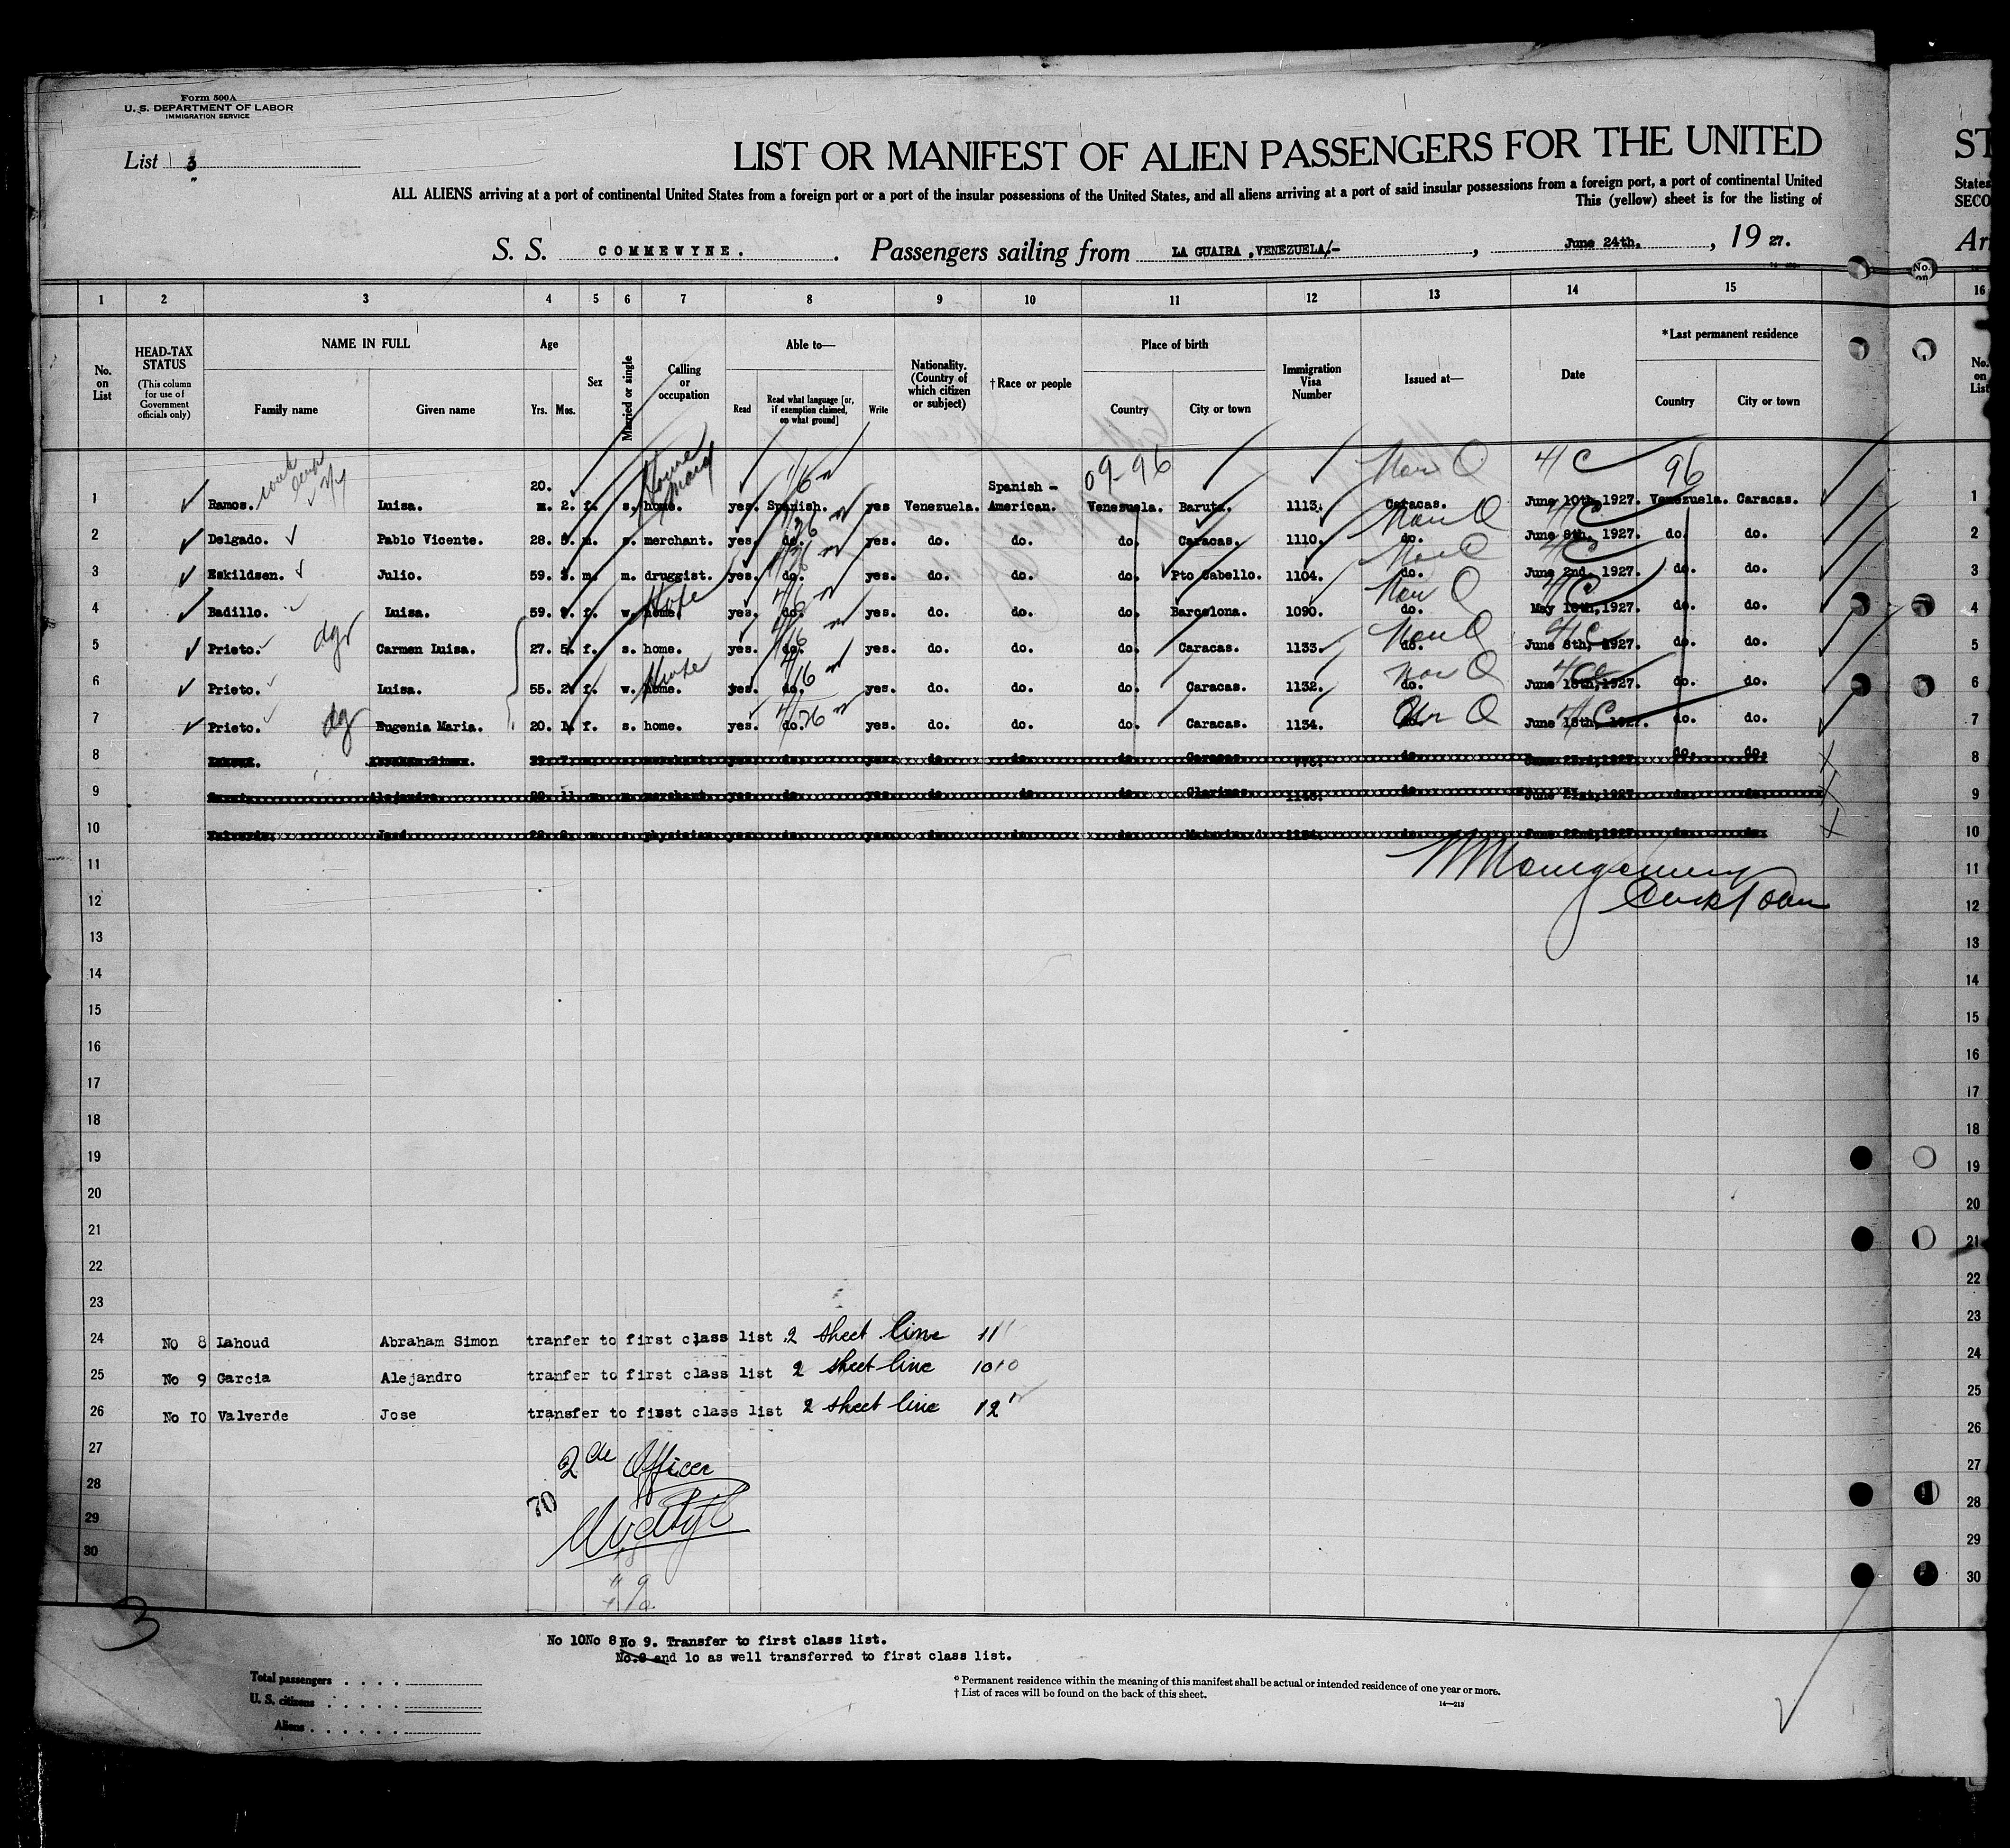 Form 500A
U. S. DEPARTMENT OF LABOR
IMMIGRATION SERVICE
List 3
LIST OR MANIFEST OF ALIEN PASSENGERS FOR THE UNITED
ST
ALL ALIENS arriving at a port of continental United States from a foreign port or a port of the insular possessions of the United States, and all aliens arriving at a port of said insular possessions from a foreign port, a port of continental United
States
This (yellow) sheet is for the listing of
SECO
S. S. COMMEWYNE. Passengers sailing from LA GUAIRA ,VENEZUELA/- , June 24th. , 19 27.
Arr
1 2 3 4 5 6 7 8 9 10 11 12 13 14 15 16
No. on List
HEAD-TAX STATUS (This column for use of Government officials only)
NAME IN FULL Family name Given name
Age Yrs. Mos.
Sex
Married or single
Calling or occupation
Able to— Read Read what language [or, if exemption claimed, on what ground] Write
Nationality. (Country of which citizen or subject)
†Race or people
Place of birth Country City or town
Immigration Visa Number
Issued at—
Date
*Last permanent residence Country City or town
No. on List
09-96 Nov Q 4C 96
1 Ramos. Luisa. 20. m. 2. f. s. home. yes. Spanish. yes Venezuela. Spanish - American. Venezuela. Baruta. 1113. Caracas. June 10th,1927. Venezuela. Caracas. 1
2 Delgado. Pablo Vicente. 28. m. s. merchant. yes. do. yes. do. do. do. Caracas. 1110. do. June 8th, 1927. do. do. 2
3 Eskildsen. Julio. 59. m. m. druggist. yes. do. yes. do. do. do. Pto Cabello. 1104. do. June 2nd, 1927. do. do. 3
4 Badillo. Luisa. 59. f. w. home. yes. do. yes. do. do. do. Barcelona. 1090. do. May 1927. do. do. 4
5 Prieto. dgr Carmen Luisa. 27. 5. f. s. home. yes. do. yes. do. do. do. Caracas. 1133. do. June 1927. do. do. 5
6 Prieto. Luisa. 55. 2. f. w. home. yes. do. yes. do. do. do. Caracas. 1132. do. June 18th,1927. do. do. 6
7 Prieto. dgr Eugenia Maria. 20. f. s. home. yes. do. yes. do. do. do. Caracas. 1134. June 18th, 1927. do. do. 7
8 do. do. 8
9 9
10 10
11 11
12 12
13 13
14 14
15 15
16 16
17 17
18 18
19 19
20 20
21 21
22 22
23 23
24 No 8 Lahoud Abraham Simon tranfer to first class list 2 sheet line 11 24
25 No 9 Garcia Alejandro tranfer to first class list 2 sheet line 10 25
26 No IO Valverde Jose transfer to first class list 2 sheet line 12 26
27 2de Officer 27
28 70 28
29 29
30 30
3
No 10No 8 No 9. Transfer to first class list.
No.8 and 1o as well transferred to first class list.
Total passengers . . . .
U. S. citizens . . . . .
Aliens . . . . . .
* Permanent residence within the meaning of this manifest shall be actual or intended residence of one year or more.
† List of races will be found on the back of this sheet.
14—213